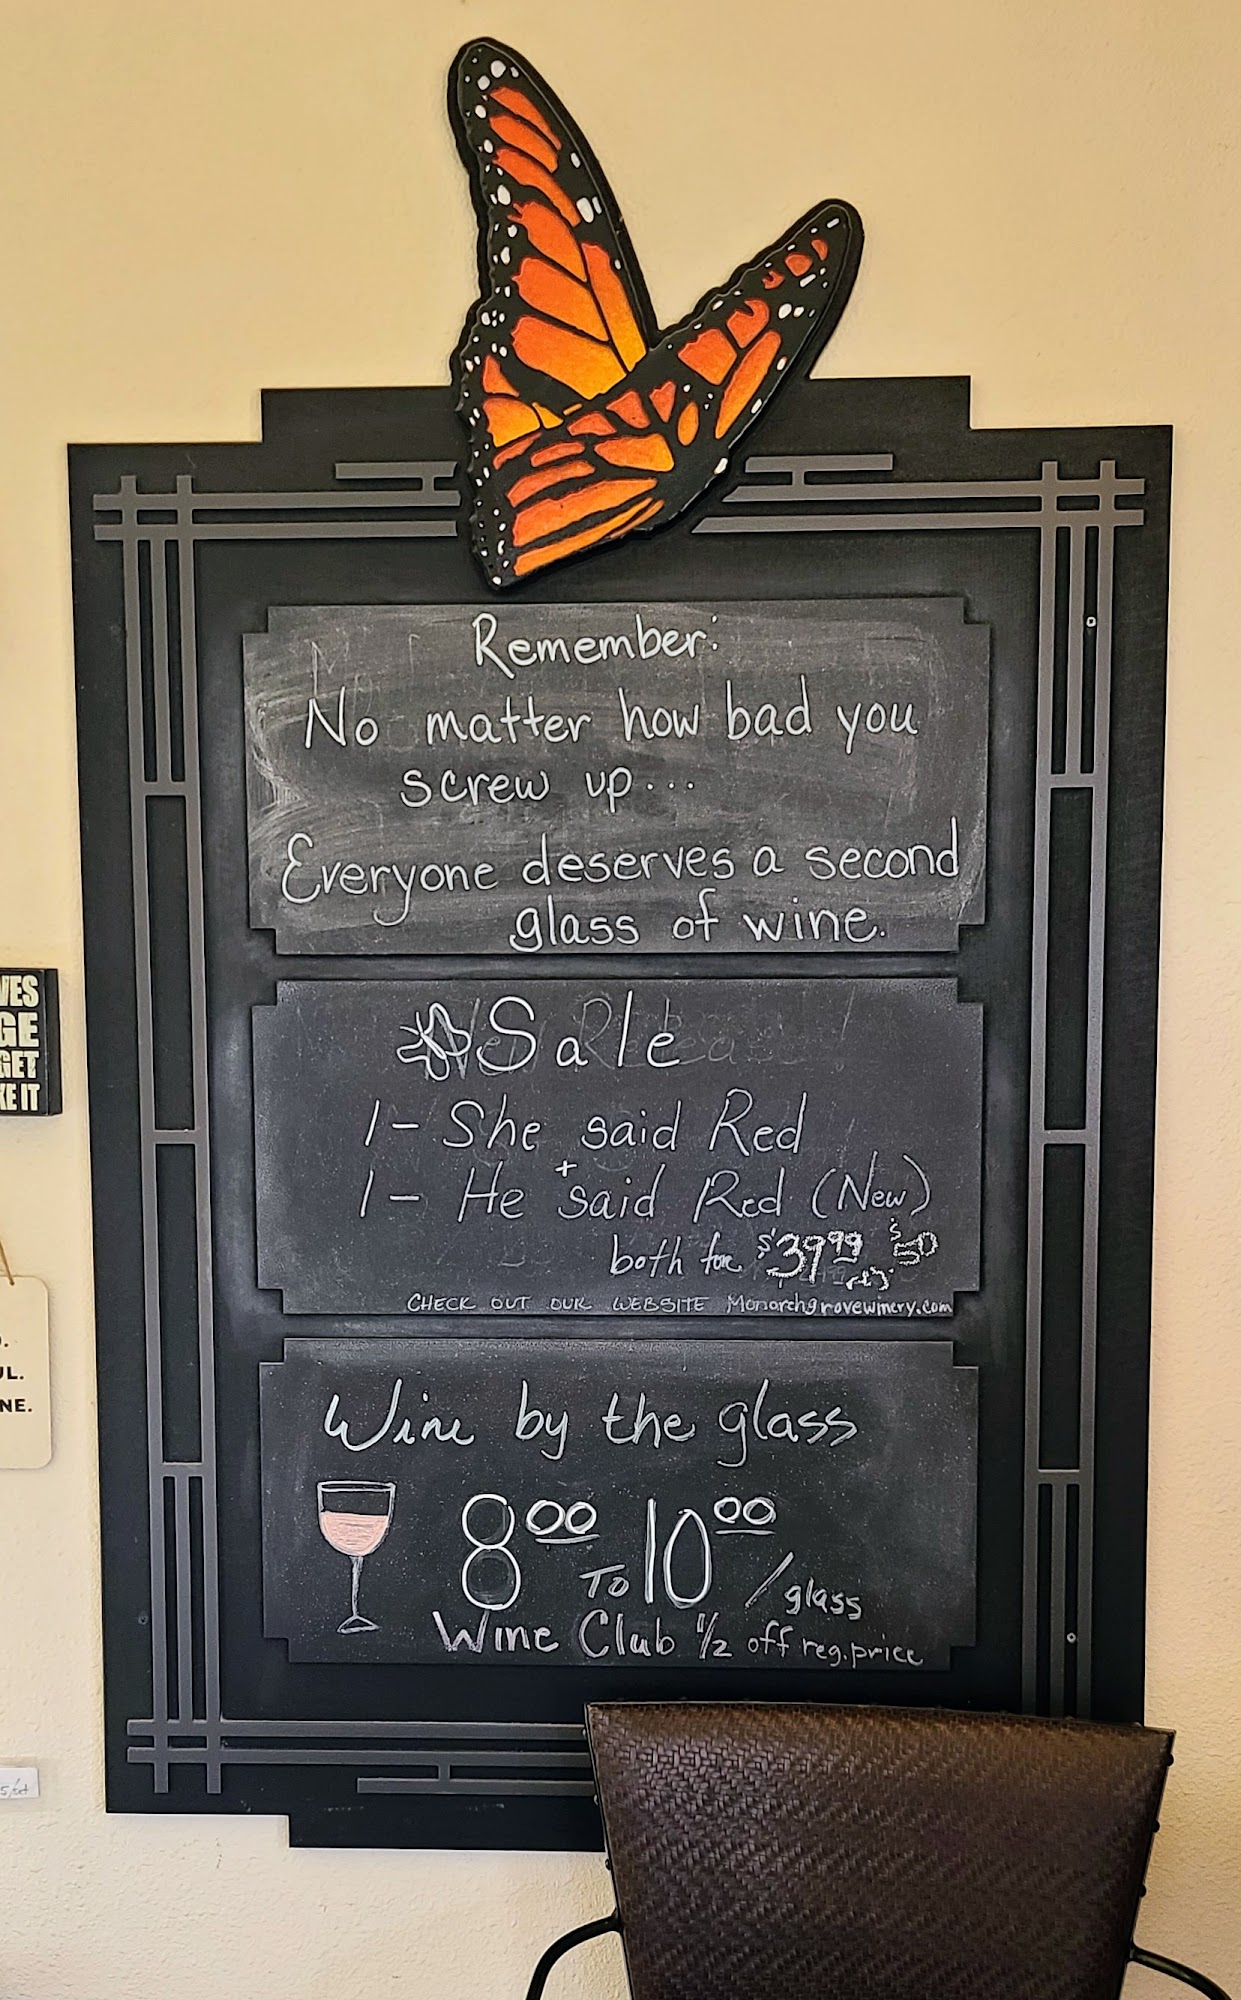 Remember:
No matter how bad you
screw up...
Everyone deserves a second
glass of wine.
Sale
1- She said Red
+
1- He said Red (New)
both for $39.99 $50
CHECK OUT OUR WEBSITE Monarchgrovewinery.com
Wine by the glass
8.00 TO 10.00 /glass
Wine Club 1/2 off reg.price
VES
GE
GET
KE IT
UL.
NE.